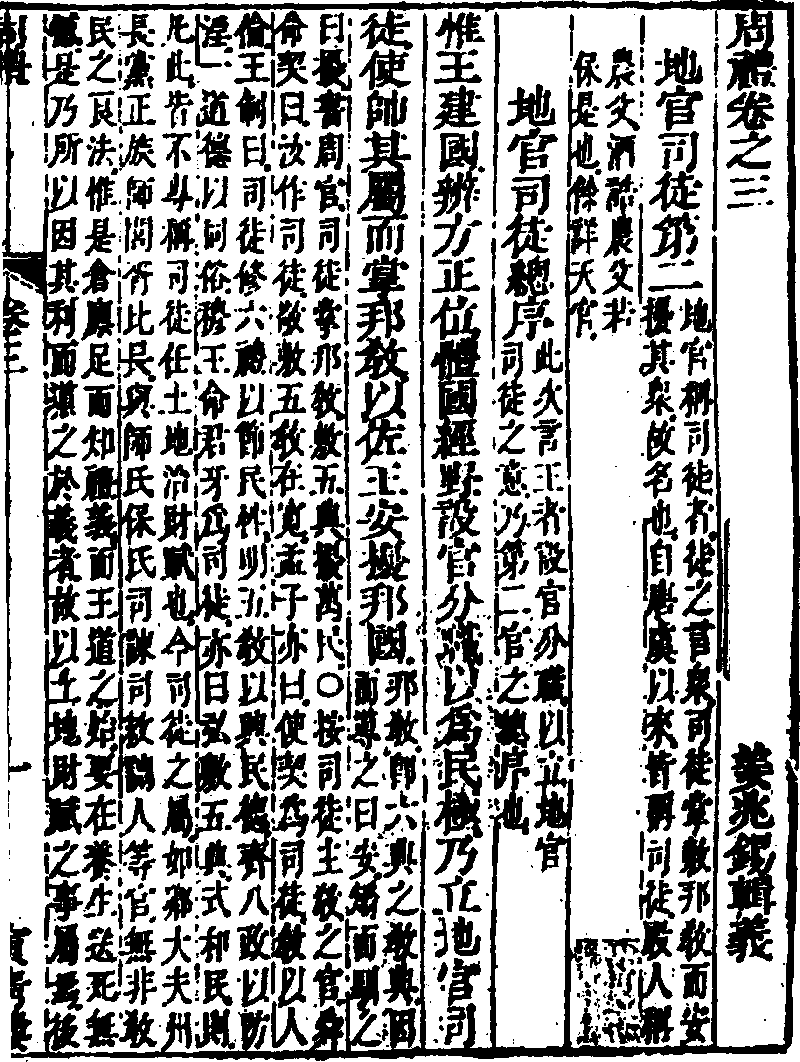 周禮卷之三
姜兆錫輯義
地官司徒第二
地官稱司徒者徒之言衆司徒掌敷邦教而安
擾其衆故名也自唐虞以來皆稱司徒殷人稱
農父酒誥農父若
保是也餘詳天官
地官司徒總序
此久言王者設官分職以立地官
司徒之意乃第二官之總序也
惟王建國辨方正位體國經野設官分職以爲民極乃立地官司
徒使帥其屬而掌邦教以佐王安擾邦國
邦教卽六典之教典因
而導之曰安篤而馴之
曰擾書周官司徒掌邦教敷五典擾萬民○按司徒主教之官舜
命契曰汝作司徒敬敷五教在寬孟子亦曰使契爲司徒教以人
倫王制曰司徒修六禮以節民性明七教以興民德齊八政以防
淫一道德以同俗穆王命君牙爲司徒亦曰弘敷五典式和民則
凡此皆不專稱司徒任土地治財賦也今司徒之屬如鄉大夫州
長黨正族師閭胥比長與師氏保氏司諫司救調人等官無非教
民之良法惟是倉廩足而知禮義而王道之始要在養生送死無
憾是乃所以因其利而導之於義者故以土地財賦之事屬焉後
周禮
卷三
一
寅清樓